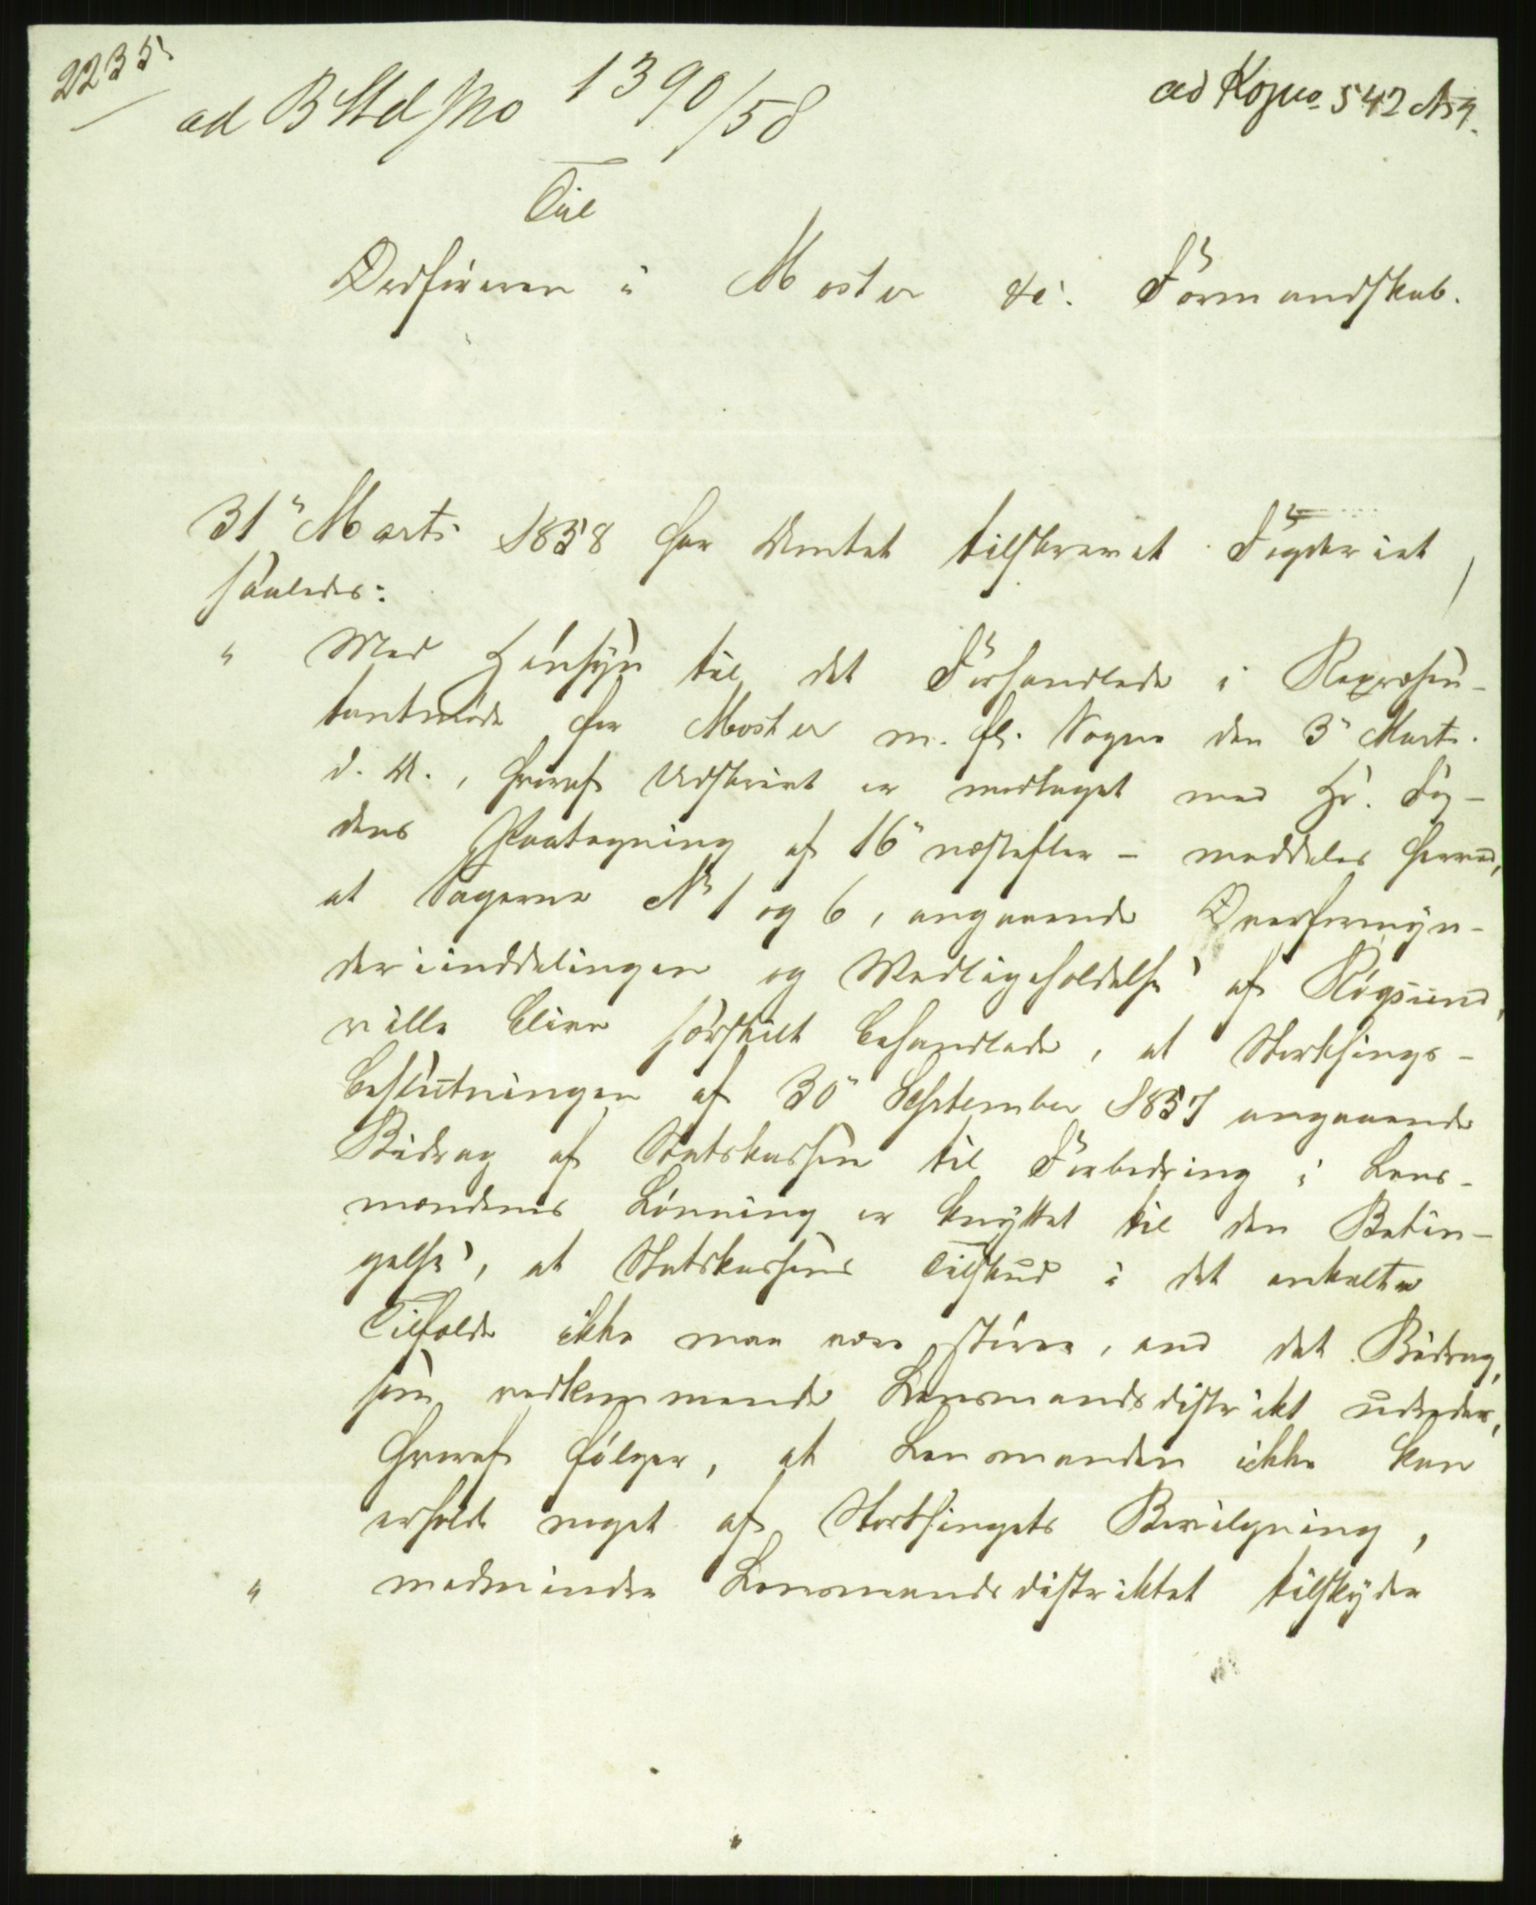 2235.
ad B Std No 1390/58
ad Kopno 542
Til
Ordføreren i Moster &c. Formandskab.
31" Marts 1858 har Amtet tilskrevet Fogderiet
saaledes:
" Med Hensyn til det Forhandlede i Repræsen-
tantmøde for Moster m. fl. Sogne den 3" Marts
d. A., hvoraf Udskrivt er modtaget med Hr. Fog-
dens Paategning af 16" næstefter - meddeles herved,
at Sagerne No 1 og 6, angaaende Overformyn-
deriinddelingen og Vedligeholdelse af Røgsund,
ville blive særskilt behandlede, at Storthings-
beslutningen af 30" September 1857 angaaende
Bidrag af Statskassen til Forbedring i Lens-
mændenes Lønning er knyttet til den Betin-
gelse, at Statskassens Tilskud i det enkelte
Tilfælde ikke maa være større, end det Bidrag,
som vedkommende Lensmandsdistrikt udreder,
hvoraf følger, at Lensmanden ikke kan
erholde noget af Storthingets Bevilgning,
" medmindre Lensmandsdistriktet tilskyder